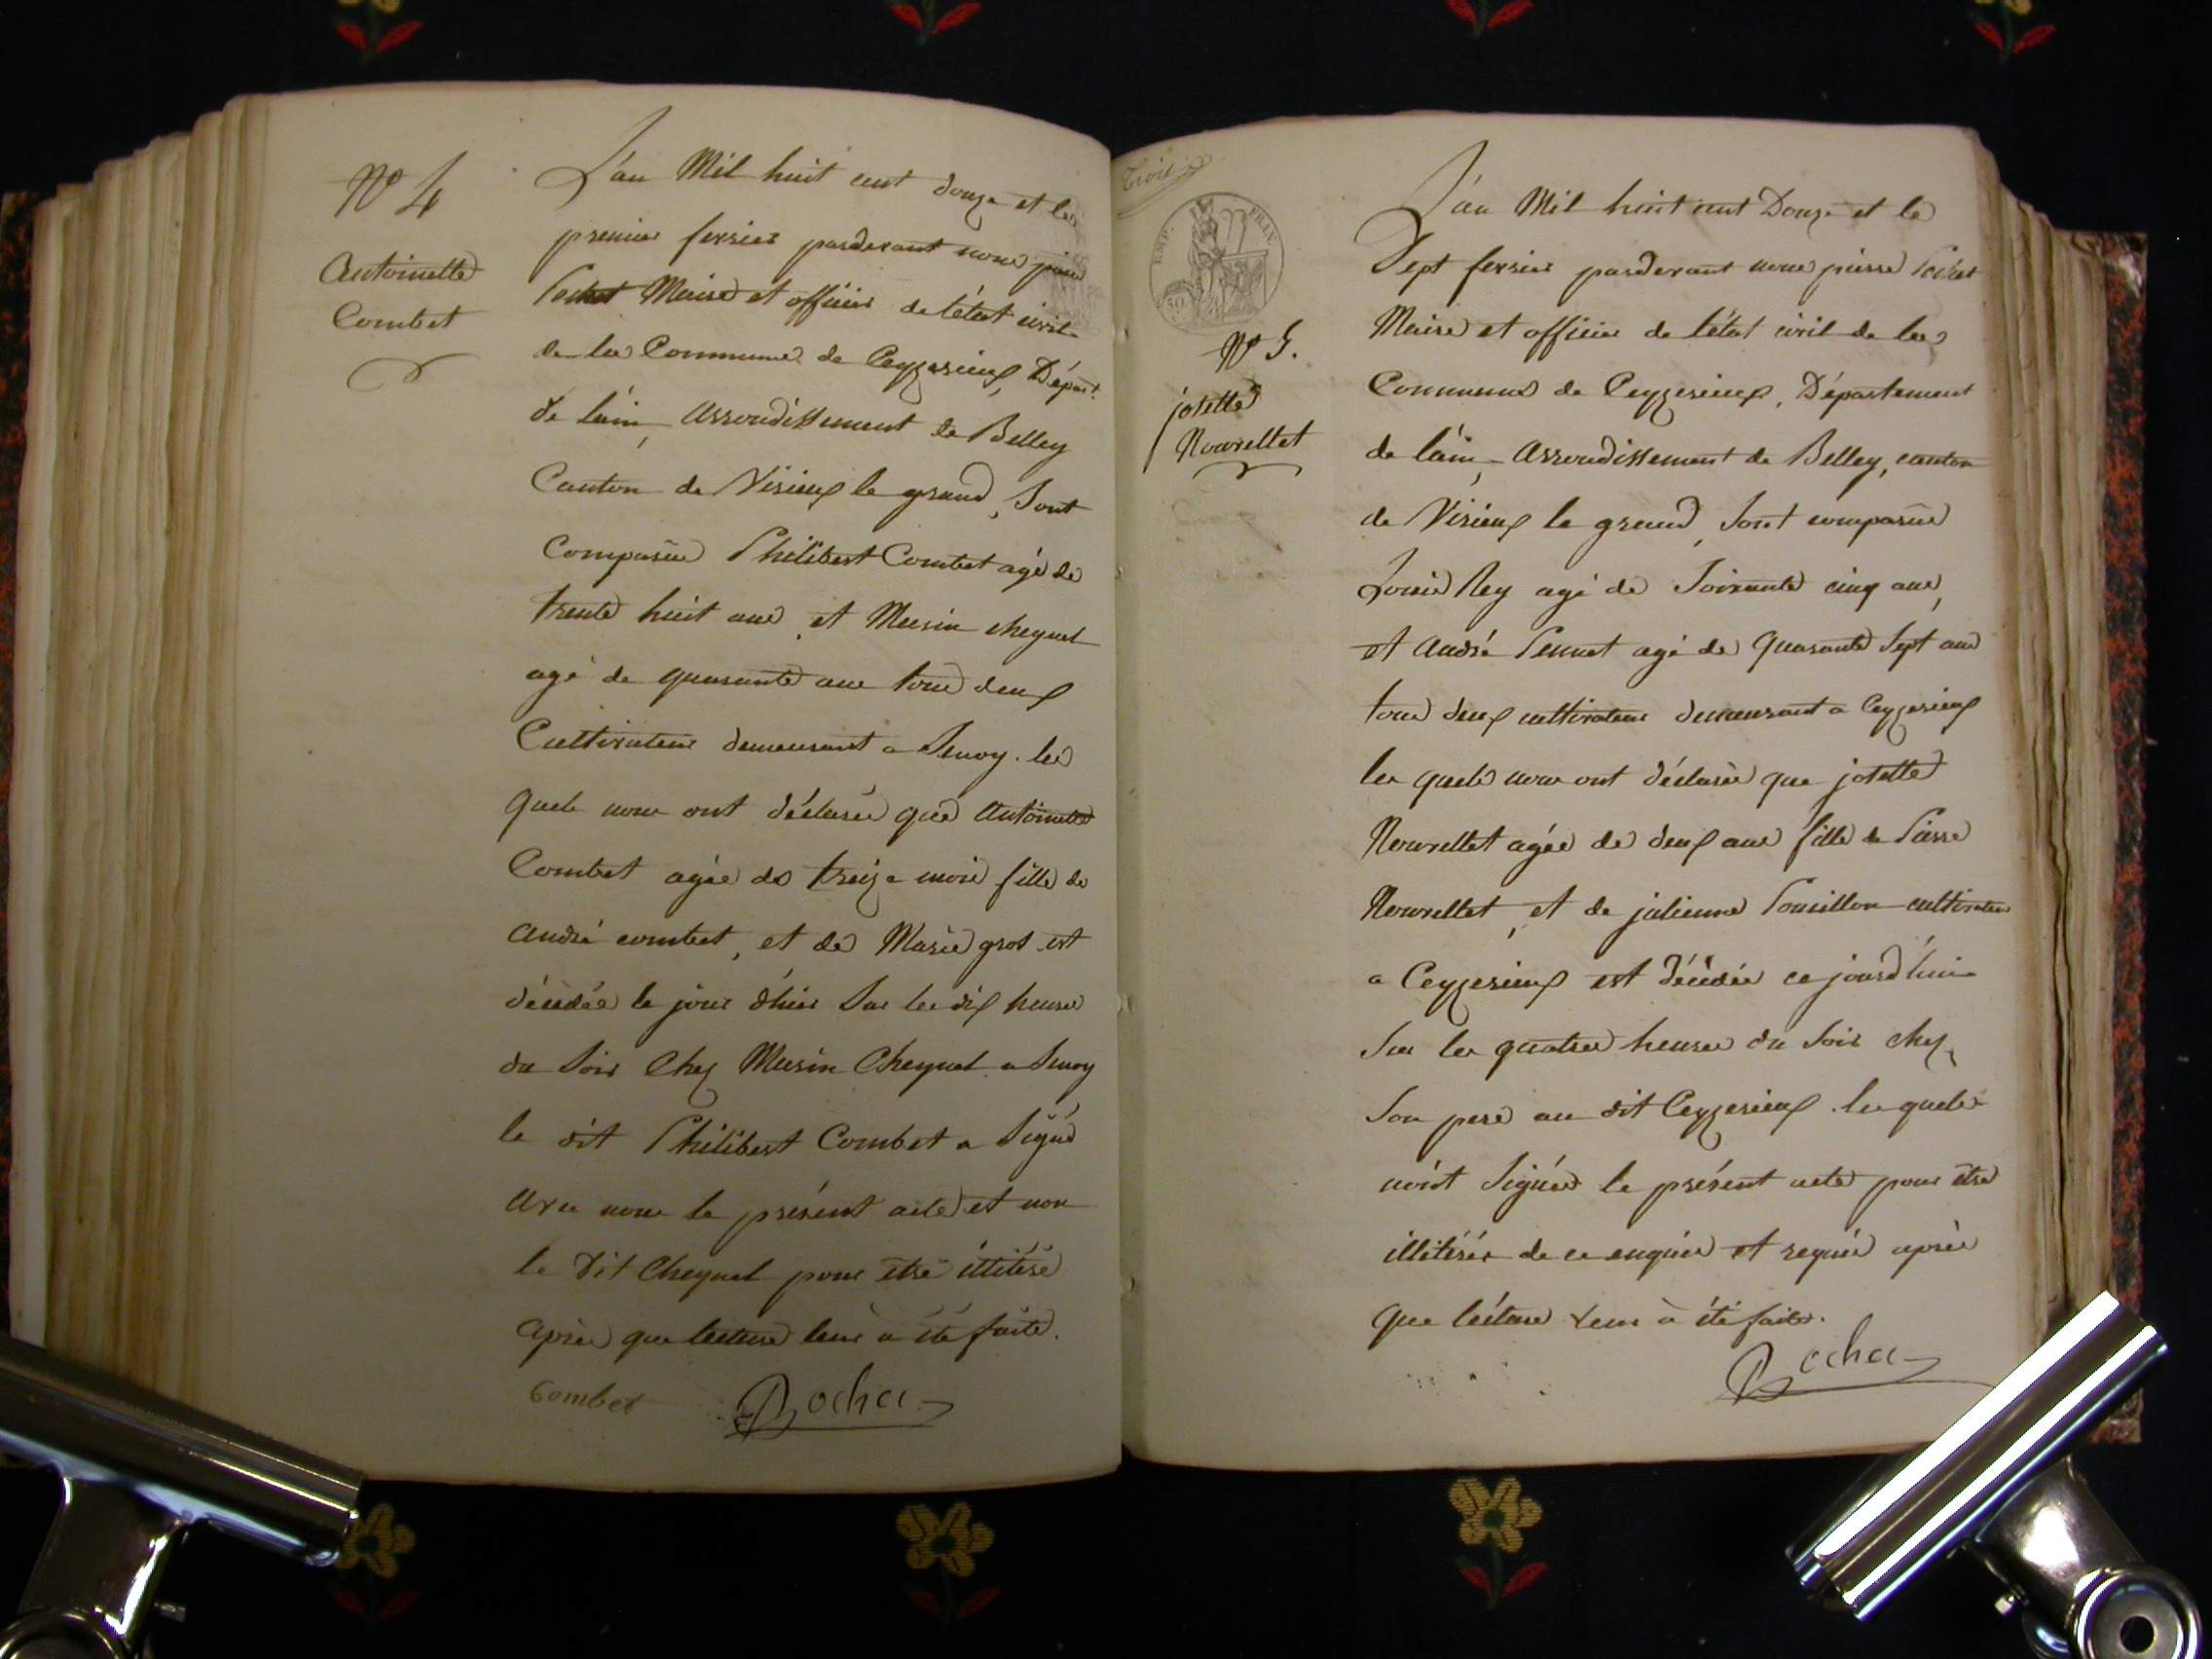 N° 4
Antoinette
Combet
L'an Mil huit cent douze et le
premier fevrier pardevant nous pierre
Pochet Maire et officier de l'état civil
de la Commune de Ceyzerieux, Départ.
de l'ain, Arrondissement de Belley
Canton de Virieux le grand, Sont
Comparus Philibert Combet agé de
trente huit ans, et Marin cheynel
agé de quarante ans tous deux
Cultivateurs demeurant a Senoy. les
quels nous ont déclarés que Antoinette
Combet agée de treize mois fille de
andré combet, et de Marie gros est
décédée le jour d'hier Sur les dix heures
du Soir Chez Marin Cheynel a Senoy
le dit Philibert Combet a Signé
avec nous le présent acte et non
le Dit Cheynel pour être illitéré
après que lecture leur à été faite.
Combet
Trois
EMP. FRAN.
50
N° 5.
josette
Nouvellet
L'an Mil huit cent Douze et le
Sept fevrier pardevant nous pierre Pochet
Maire et officier de l'état civil de la
Commune de Ceyzerieux, Département
de l'ain, Arrondissement de Belley, canton
de Virieux le grand, Sont comparus
Louis Rey agé de Soixante cinq ans,
et andré Pennet agé de Quarante Sept ans
tous deux cultivateurs demeurant a Ceyzerieux
les quels nous ont déclarés que josette
Nouvellet agée de deux ans fille de Pierre
Nouvellet, et de julienne Pouillon cultivateurs
a Ceyzerieux est décédée ce jourd'hui
Sur les quatres heures du Soir chez
Son pere au dit Ceyzerieux. les quels
n'ont Signés le présent acte pour être
illitérés de ce enquis et requis après
que lécture leur à été faite.